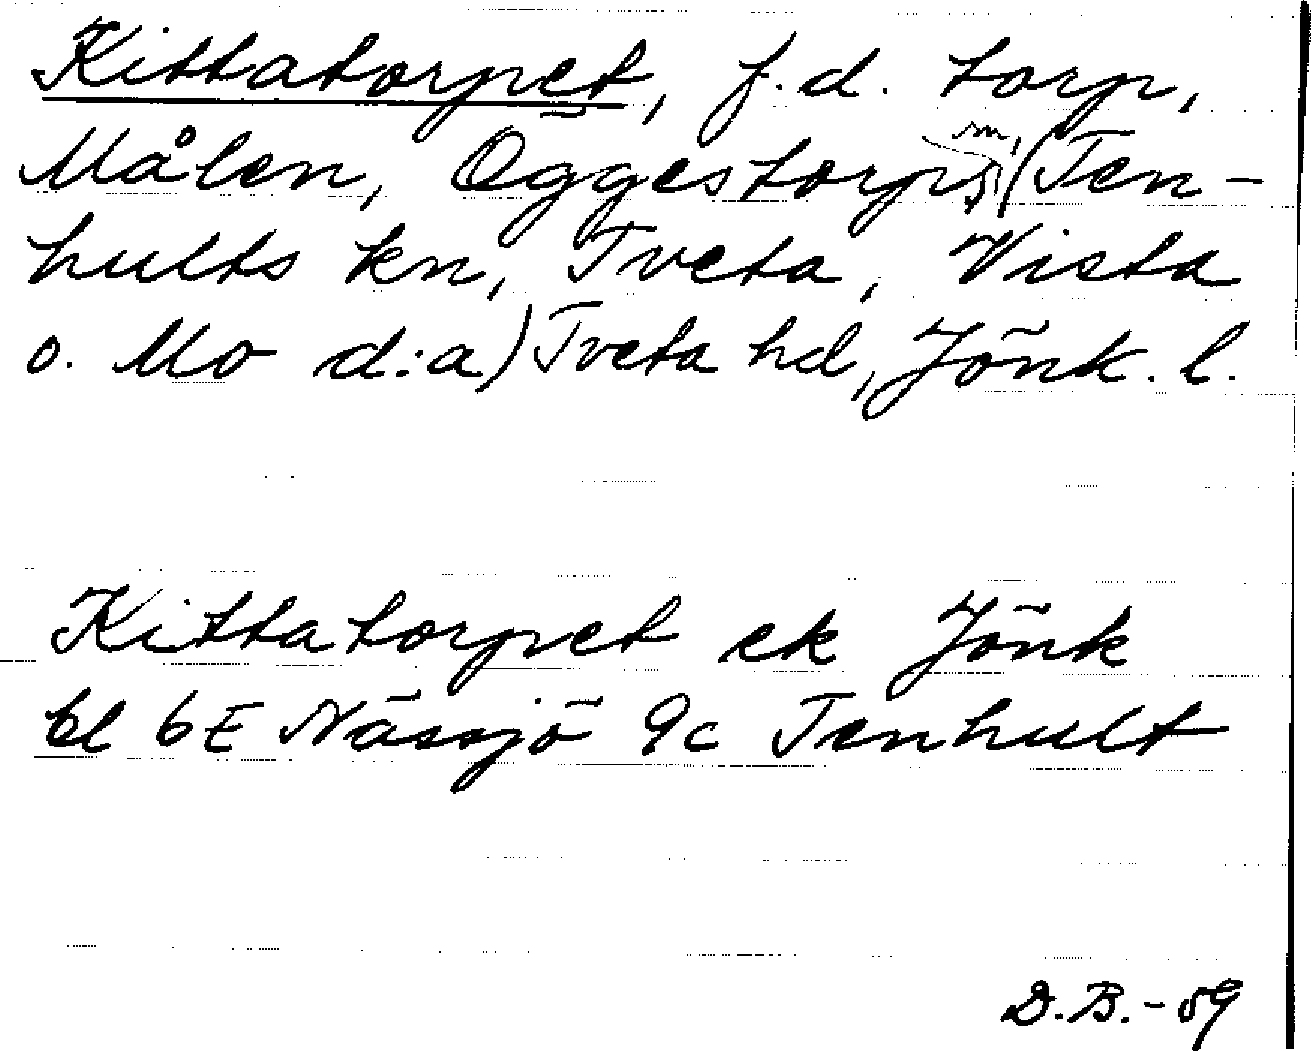 Kittatorpet, f.d. torp,
Målen, Öggestorps sn, (Ten-
hults kn, Tveta, Vista
o. Mo d:a) Tveta hd, Jönk. l.
Kittatorpet ek Jönk
bl 6E Nässjö 9c Tenhult
D.B.-59